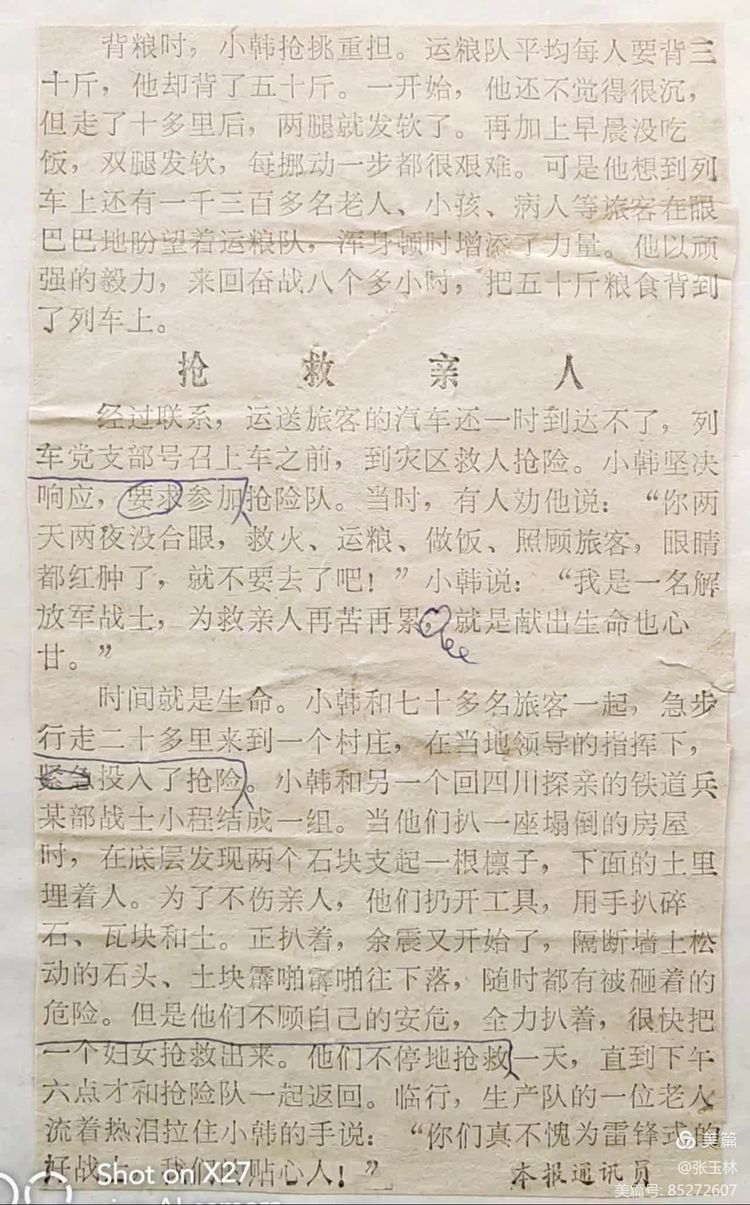 背粮时，小韩抢挑重担。运粮队平均每人要背三
十斤，他却背了五十斤。一开始，他还不觉得很沉，
但走了十多里后，两腿就发软了。再加上早晨没吃
饭，双腿发软，每挪动一步都很艰难。可是他想到列
车上还有一千三百多名老人、小孩、病人等旅客在眼
巴巴地盼望着运粮队，浑身顿时增添了力量。他以顽
强的毅力，来回奋战八个多小时，把五十斤粮食背到
了列车上。
抢救亲人
经过联系，运送旅客的汽车还一时到达不了，列
车党支部号召上车之前，到灾区救人抢险。小韩坚决
响应，要求参加抢险队。当时，有人劝他说：“你两
天两夜没合眼，救火、运粮、做饭、照顾旅客，眼睛
都红肿了，就不要去了吧！”小韩说：“我是一名解
放军战士，为救亲人再苦再累，就是献出生命也心
甘。”
时间就是生命。小韩和七十多名旅客一起，急步
行走二十多里来到一个村庄，在当地领导的指挥下，
紧急投入了抢险。小韩和另一个回四川探亲的铁道兵
某部战士小程结成一组。当他们扒一座塌倒的房屋
时，在底层发现两个石块支起一根檩子，下面的土里
埋着人。为了不伤亲人，他们扔开工具，用手扒碎
石、瓦块和土。正扒着，余震又开始了，隔断墙上松
动的石头、土块霹啪霹啪往下落，随时都有被砸着的
危险。但是他们不顾自己的安危，全力扒着，很快把
一个妇女抢救出来。他们不停地抢救一天，直到下午
六点才和抢险队一起返回。临行，生产队的一位老人
流着热泪拉住小韩的手说：“你们真不愧为雷锋式的
好战士，我们的贴心人！”
本报通讯员
Shot on X27
美篇
@张玉林
美篇号: 85272607